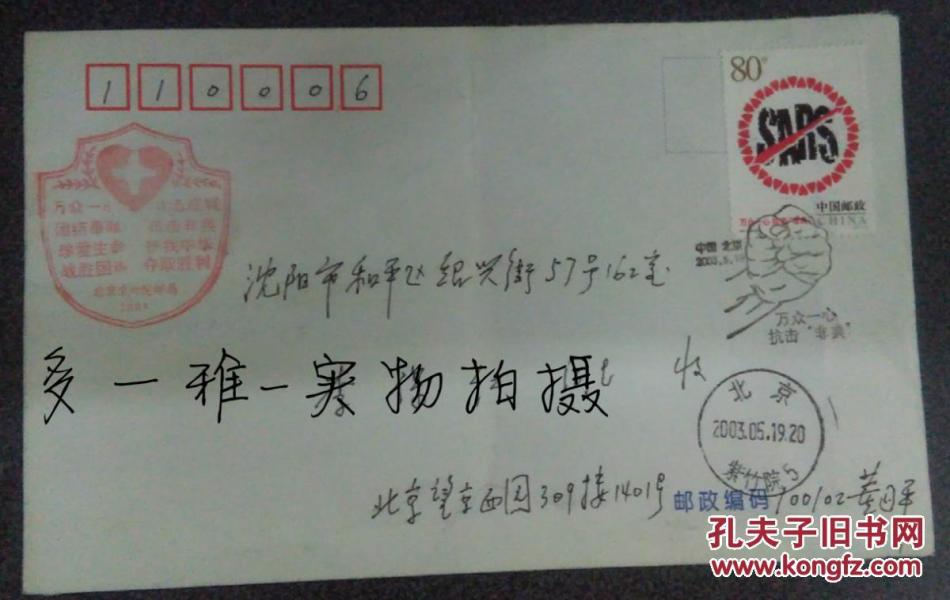 110006
80分
SARS
中国邮政
CHINA
万众一心
团结奉献
珍爱生命
战胜困难 夺取胜利
中国 北京
2003.5.19
万众一心
抗击"非典"
沈阳市和平区绍兴街57号162室
收
多一雅一实物拍摄
北京
2003.05.19.20
紫竹院5
北京望京西园309楼1401号
邮政编码 100102
孔夫子旧书网
www.kongfz.com